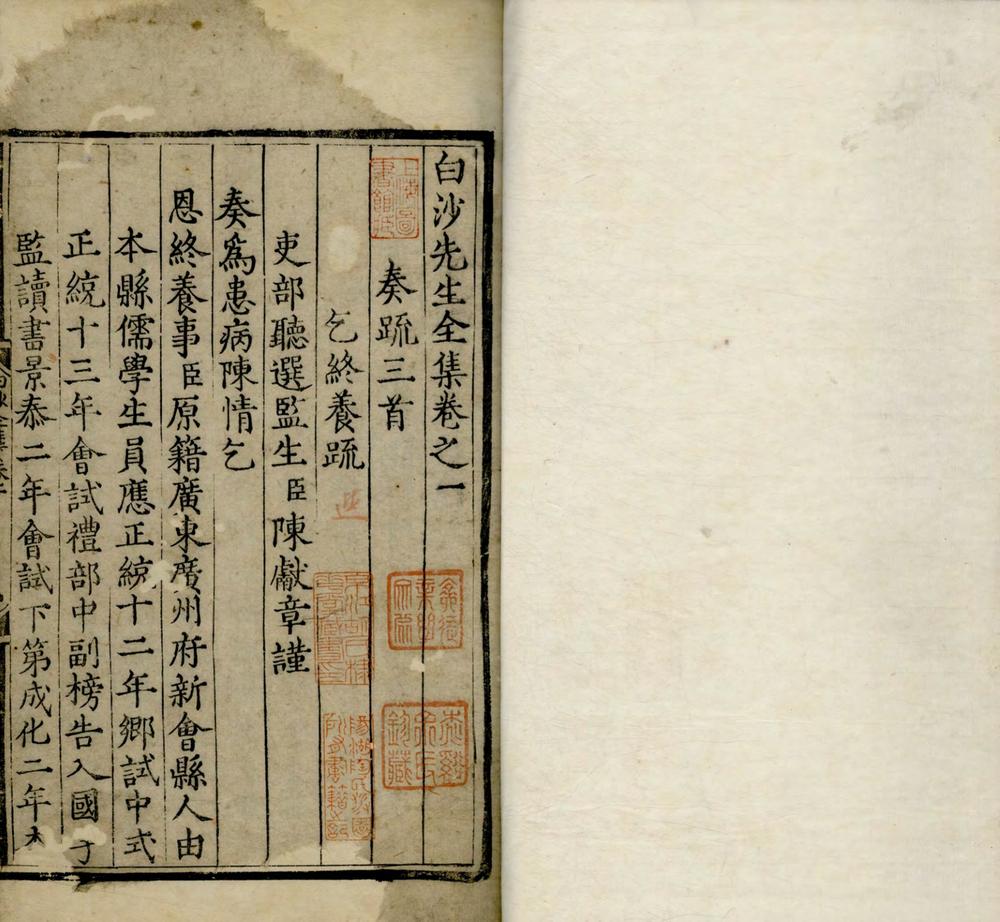 白沙先生全集卷之一
上海圖書館藏
奏疏三首
乞終養疏
陽湖陶氏涉園所有書籍之記
吏部聽選監生臣陳獻章謹
奏爲患病陳情乞
恩終養事臣原籍廣東廣州府新會縣人由
本縣儒學生員應正統十二年鄉試中式
正統十三年會試禮部中副榜告入國子
監讀書景泰二年會試下第成化二年本